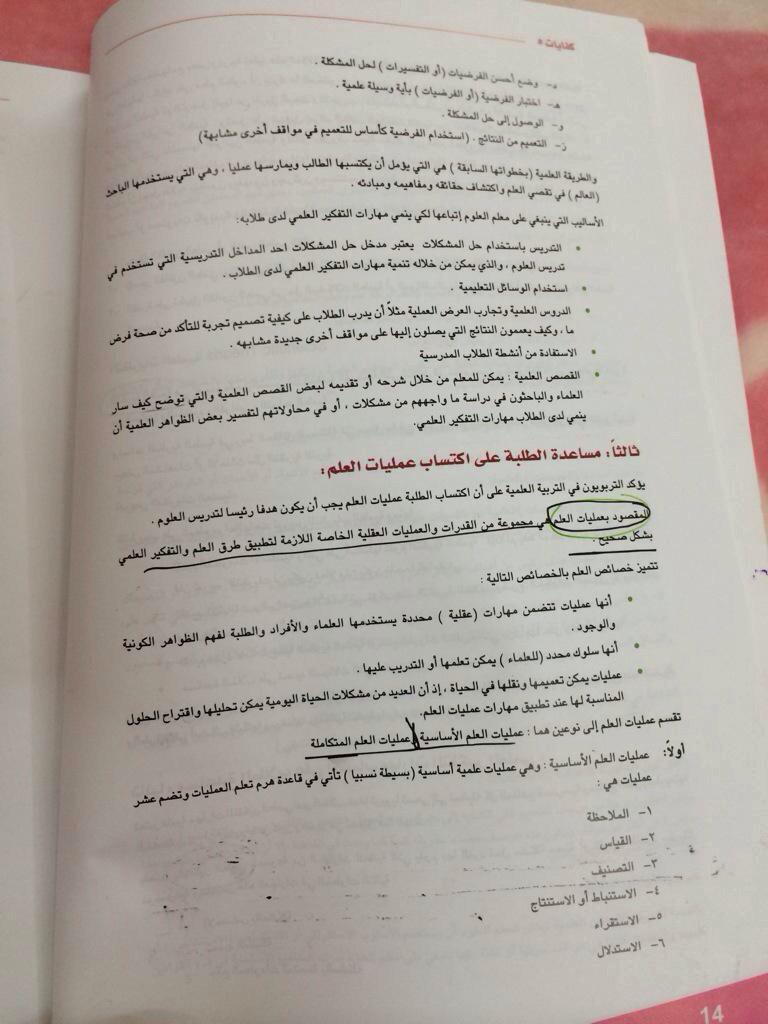 كفايات *
د- وضع أحسن الفرضيات (أو التفسيرات ) لحل المشكلة .
هـ- اختبار الفرضية (أو الفرضيات ) بأية وسيلة علمية .
و- الوصول إلى حل المشكلة .
ز- التعميم من النتائج . (استخدام الفرضية كأساس للتعميم في مواقف أخرى مشابهة)
والطريقة العلمية (بخطواتها السابقة ) هي التي يؤمل أن يكتسبها الطالب ويمارسها عمليا ، وهي التي يستخدمها الباحث
(العالم ) في تقصي العلم واكتشاف حقائقه ومفاهيمه ومبادئه .
الأساليب التي ينبغي على معلم العلوم إتباعها لكي ينمي مهارات التفكير العلمي لدى طلابه:
• التدريس باستخدام حل المشكلات يعتبر مدخل حل المشكلات احد المداخل التدريسية التي تستخدم في
تدريس العلوم ، والذي يمكن من خلاله تنمية مهارات التفكير العلمي لدى الطلاب .
• استخدام الوسائل التعليمية .
• الدروس العلمية وتجارب العرض العملية مثلاً أن يدرب الطلاب على كيفية تصميم تجربة للتأكد من صحة فرض
ما ، وكيف يعممون النتائج التي يصلون إليها على مواقف أخرى جديدة مشابهه .
• الاستفادة من أنشطة الطلاب المدرسية
• القصص العلمية : يمكن للمعلم من خلال شرحه أو تقديمه لبعض القصص العلمية والتي توضح كيف سار
العلماء والباحثون في دراسة ما واجههم من مشكلات ، أو في محاولاتهم لتفسير بعض الظواهر العلمية أن
ينمي لدى الطلاب مهارات التفكير العلمي.
ثالثاً: مساعدة الطلبة على اكتساب عمليات العلم:
يؤكد التربويون في التربية العلمية على أن اكتساب الطلبة عمليات العلم يجب أن يكون هدفا رئيسا لتدريس العلوم .
المقصود بعمليات العلم هي مجموعة من القدرات والعمليات العقلية الخاصة اللازمة لتطبيق طرق العلم والتفكير العلمي
بشكل صحيح .
تتميز خصائص العلم بالخصائص التالية :
• أنها عمليات تتضمن مهارات (عقلية ) محددة يستخدمها العلماء والأفراد والطلبة لفهم الظواهر الكونية
والوجود .
• أنها سلوك محدد (للعلماء ) يمكن تعلمها أو التدريب عليها .
• عمليات يمكن تعميمها ونقلها في الحياة ، إذ أن العديد من مشكلات الحياة اليومية يمكن تحليلها واقتراح الحلول
المناسبة لها عند تطبيق مهارات عمليات العلم.
تقسم عمليات العلم إلى نوعين هما : عمليات العلم الأساسية / عمليات العلم المتكاملة
أولاً: عمليات العلم الأساسية : وهي عمليات علمية أساسية (بسيطة نسبيا ) تأتي في قاعدة هرم تعلم العمليات وتضم عشر
عمليات هي :
١- الملاحظة
٢- القياس
٣- التصنيف
٤- الاستنباط أو الاستنتاج
٥- الاستقراء
٦- الاستدلال
14